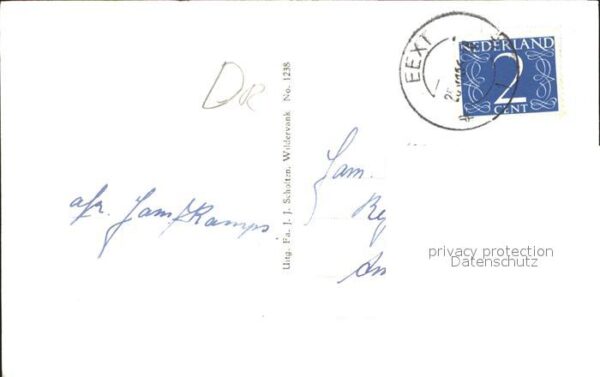 Dr
afz. Fam. Kamps
Uitg. Fa. J. J. Scholten, Wildervank No. 1238
Fam.
EEXT
NEDERLAND
2
CENT
privacy protection
Datenschutz